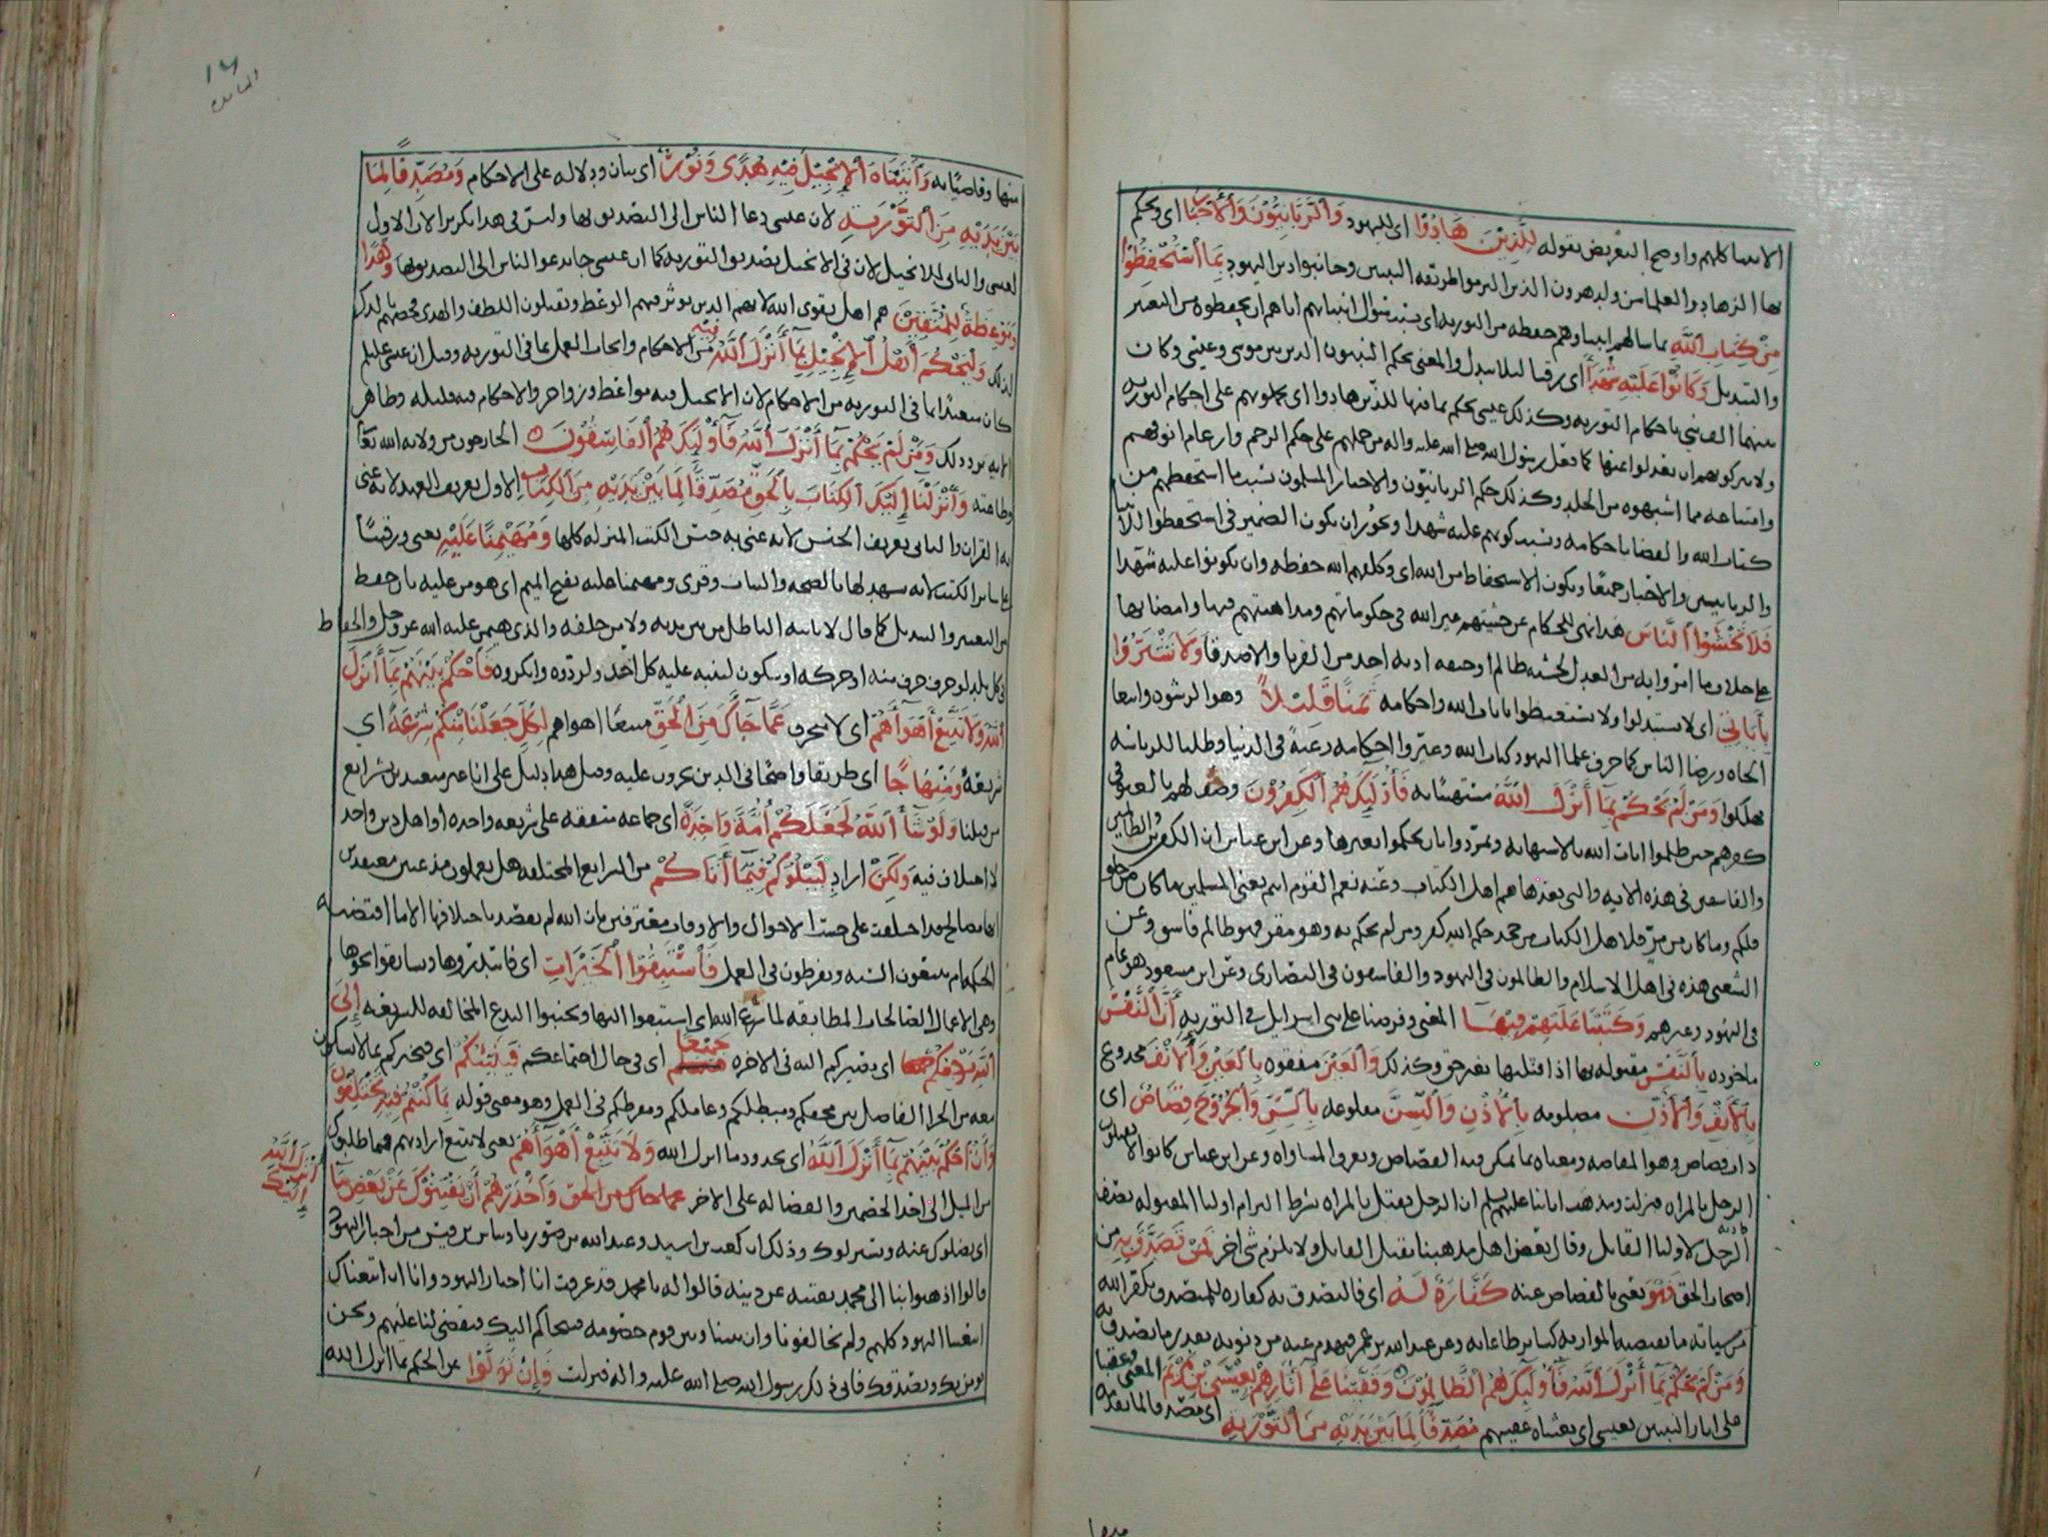 الانبيا كلهم واوضح التعريض بقوله لِلَّذِيْنَ هَادُوْا اى لليهود وَالرَّبَّانِيُّوْنَ وَالْأَحْبَارُ اى ويحكم
بها الزهاد والعلما من ولد هرون الذين التزموا طريقه النبيين وجانبوا دين اليهود بِمَا اسْتُحْفِظُوْا
مِنْ كِتَابِ اللَّهِ بما سالهم انبياوهم حفظه من التوريه اى بسبب سوال انبيايهم اياهم ان يحفظوه من التغيير
والتبديل وَكَانُوْا عَلَيْهِ شُهَدَآءَ اى رقبا ليلا يبدل والمعنى يحكم النبيون الذين بين موسى وعيسى وكان
بينهما الف نبى باحكام التوريه وكذلك عيسى يحكم بما فيها للذين هادوا اى يحملونهم على احكام التوريه
ولا يتركونهم ان يعدلوا عنها كما فعل رسول الله صلى الله عليه واله من حملهم على حكم الرجم وارغام انوفهم
وامتناعه مما اشتهوه من الجلد وكذلك حكم الربانيون والاحبار المسلمون بسبب ما استحفظهم من
كتاب الله والقضا باحكامه وبسبب كونهم عليه شهدا ويجوز ان يكون الضمير فى استحفظوا للانبيا
والربانيين والاحبار جميعا ويكون الاستحفاظ من الله اى وكلفهم الله حفظه وان يكونوا عليه شهدا
فَلَا تَخْشَوُا النَّاسَ هذا نهى للحكام عن خشيتهم غير الله فى حكوماتهم ومداهنتهم فيها وامضايها
على خلاف ما امروا به من العدل لخشيه ظالم او خيفه اذيه احد من القربا والاصدقا وَلَا تَشْتَرُوْا
بِأٰيَاتِيْ اى لا تستبدلوا ولا تستعيضوا بايات الله واحكامه ثَمَنًا قَلِيْلًا وهو الرشوه وابتغا
الجاه ورضا الناس كما حرف علما اليهود كتاب الله وغيروا احكامه رغبة فى الدنيا وطلبا للرياسه
فهلكوا وَمَنْ لَمْ يَحْكُمْ بِمَآ أَنْزَلَ اللَّهُ مستهينا به فَأُولٰٓئِكَ هُمُ الْكٰفِرُوْنَ وصف لهم بالعتو فى
كفرهم حين ظلموا ايات الله بالاستهانه وتمردوا بان يحكموا بغيرها وعن ابن عباس ان الكفرين والظالمين
والفاسقين فى هذه الايه والتى بعدها هم اهل الكتاب وعنه نعم القوم انتم يعنى المسلمين ما كان من حلو
فلكم وما كان من مر فلاهل الكتاب من جحد حكم الله كفر ومن لم يحكم به وهو مقر فهو ظالم فاسق وعن
الشعبى هذه فى اهل الاسلام والظالمون فى اليهود والفاسقون فى النصارى وعن ابن مسعود هو عام
فى اليهود وغيرهم وَكَتَبْنَا عَلَيْهِمْ فِيْهَآ المعنى وفرضنا على بنى اسرايل فى التوريه أَنَّ النَّفْسَ
ماخوذه بِالنَّفْسِ مقتوله بها اذا قتلتها بغير حق وكذلك وَالْعَيْنَ مفقوه بِالْعَيْنِ وَالْأَنْفَ مجدوع
بِالْأَنْفِ وَالْأُذُنَ مصلومه بِالْأُذُنِ وَالسِّنَّ مقلوعه بِالسِّنِّ وَالْجُرُوْحَ قِصَاصٌ اى
ذات قصاص وهو المقاصه ومعناه ما يمكن فيه القصاص وتعرف المساواه وعن ابن عباس كانوا لا يقتلون
الرجل بالمراه فنزلت ومذهب ايمتنا عليهم السلم ان الرجل يقتل بالمراه بشرط التزام اوليا المقتوله بنصف
ديه الرجل لاوليا القاتل وقال بعض اهل مذهبنا يقتل القاتل ولا يلزم شى اخر فَمَنْ تَصَدَّقَ بِهِ من
اصحاب الحق فَهُوَ يعنى بالقصاص عنه كَفَّارَةٌ لَهُ اى فالتصدق به كفاره للمتصدق يكفر الله
من سياته ما تقتضيه الموازنه كساير طاعاته وعن عبد الله بن عمر فيهدم عنه من ذنوبه بقدر ما تصدق به
وَمَنْ لَمْ يَحْكُمْ بِمَآ أَنْزَلَ اللَّهُ فَأُولٰٓئِكَ هُمُ الظَّالِمُوْنَ وَقَفَّيْنَا عَلٰى أٰثَارِهِمْ بِعِيْسَى بْنِ مَرْيَمَ المعنى وعقبنا
على اثار النبيين بعيسى اى بعثناه عقيبهم مُصَدِّقًا لِمَا بَيْنَ يَدَيْهِ مِنَ التَّوْرٰيةِ اى مصدقا لما تقدمه
منها
١٦
المايده
منها وقاضيا به وَأٰتَيْنَاهُ الْإِنْجِيْلَ فِيْهِ هُدًى وَنُوْرٌ اى بيان ودلاله على الاحكام وَمُصَدِّقًا لِمَا
بَيْنَ يَدَيْهِ مِنَ التَّوْرٰيةِ لان عيسى دعا الناس الى التصديق بها وليس فى هذا تكرير لان الاول
لعيسى والثانى للانجيل لان فى الانجيل تصديق التوريه كما ان عيسى جا يدعو الناس الى التصديق بها وَهُدًا
وَمَوْعِظَةً لِلْمُتَّقِيْنَ هم اهل تقوى الله لانهم الذين يوثر فيهم الوعظ ويقبلون اللطف والهدى فخصهم بالذكر
لذلك وَلْيَحْكُمْ أَهْلُ الْإِنْجِيْلِ بِمَآ أَنْزَلَ اللَّهُ فِيْهِ من الاحكام وايجاب العمل بما فى التوريه وقيل ان عيسى عليلم
كان متعبدا بما فى التوريه من الاحكام لان الانجيل فيه مواعظ وزواجر والاحكام فيه قليله وظاهر
الايه يرد ذلك وَمَنْ لَمْ يَحْكُمْ بِمَآ أَنْزَلَ اللَّهُ فَأُولٰٓئِكَ هُمُ الْفَاسِقُوْنَ الخارجون من ولايه الله تعا
وطاعته وَأَنْزَلْنَآ إِلَيْكَ الْكِتَابَ بِالْحَقِّ مُصَدِّقًا لِمَا بَيْنَ يَدَيْهِ مِنَ الْكِتَابِ الاول تعريف العهد لانه عنى
به القران والثانى تعريف الجنس لانه عنى به جنس الكتب المنزله كلها وَمُهَيْمِنًا عَلَيْهِ يعنى ورقيبا
على ساير الكتب لانه يشهد لها بالصحه والثبات وقرى ومهيمنا عليه بفتح الميم اى هومن عليه بان حفظ
من التغيير والتبديل كما قال لا ياتيه الباطل من بين يديه ولا من خلفه والذى هيمن عليه الله عز وجل والحفاظ
فى كل بلد لو حرف حرف منه او حركه او سكون لتنبه عليه كل احد ولردوه وانكروه فَاحْكُمْ بَيْنَهُمْ بِمَآ أَنْزَلَ
اللَّهُ وَلَا تَتَّبِعْ أَهْوَآءَهُمْ اى لا تنحرف عَمَّا جَآءَكَ مِنَ الْحَقِّ متبعا اهواهم لِكُلٍّ جَعَلْنَا مِنْكُمْ شِرْعَةً اى
شريعه وَمِنْهَاجًا اى طريقا واضحا فى الدين تجرون عليه وقيل هذا دليل على انا غير متعبدين بشرايع
من قبلنا وَلَوْ شَآءَ اللَّهُ لَجَعَلَكُمْ أُمَّةً وَاحِدَةً اى جماعه متفقه على شريعه واحده او اهل دين واحد
لا اختلاف فيه وَلٰكِنْ اراد لِيَبْلُوَكُمْ فِيْمَآ أٰتَاكُمْ من الشرايع المختلفه هل تعملون مذعنين معتقدين
انها مصالح قد اختلفت على حسب الاحوال والاوقات معترفين بان الله لم يقصد باختلافها الا ما اقتضته
الحكمه ام تتبعون الشبه وتفرطون فى العمل فَاسْتَبِقُوا الْخَيْرَاتِ اى فابتدروها وتسابقوا نحوها
وهى الاعمال الصالحات المطابقه لما شرع الله اى استبقوا اليها وتجنبوا البدع المخالفه للشريعه إِلَى
اللَّهِ مَرْجِعُكُمْ اى مصيركم اليه فى الاخره جَمِيْعًا اى فى حال اجتماعكم فَيُنَبِّئُكُمْ اى فيخبركم بما لا تشكون
معه من الجزا الفاصل بين محقكم ومبطلكم وعاملكم ومفرطكم فى العمل وهو معنى قوله بِمَا كُنْتُمْ فِيْهِ تَخْتَلِفُوْنَ
وَأَنِ احْكُمْ بَيْنَهُمْ بِمَآ أَنْزَلَ اللَّهُ اى بحدود ما انزل الله وَلَا تَتَّبِعْ أَهْوَآءَهُمْ يعنى لا تتبع اراداتهم فيما طلبوك
من الميل الى احد الخصمين والقضا له على الاخر عما جاك من الحق وَاحْذَرْهُمْ أَنْ يَفْتِنُوْكَ عَنْ بَعْضِ مَآ
أَنْزَلَ اللَّهُ إِلَيْكَ
اى يضلوك عنه ويستزلوك وذلك ان كعب بن اسيد وعبد الله بن صوريا وشاس بن قيس من احبار اليهود
قالوا اذهبوا بنا الى محمد نفتنه عن دينه فقالوا له يا محمد قد عرفت انا احبار اليهود وانا ان اتبعناك
اتبعتنا اليهود كلهم ولم يخالفونا وان بيننا وبين قوم خصومه فنتحاكم اليك فتقضى لنا عليهم ونحن
نومن بك ونصدقك فابى ذلك رسول الله صلى الله عليه واله فنزلت وَإِنْ تَوَلَّوْا عن الحكم بما انزل الله